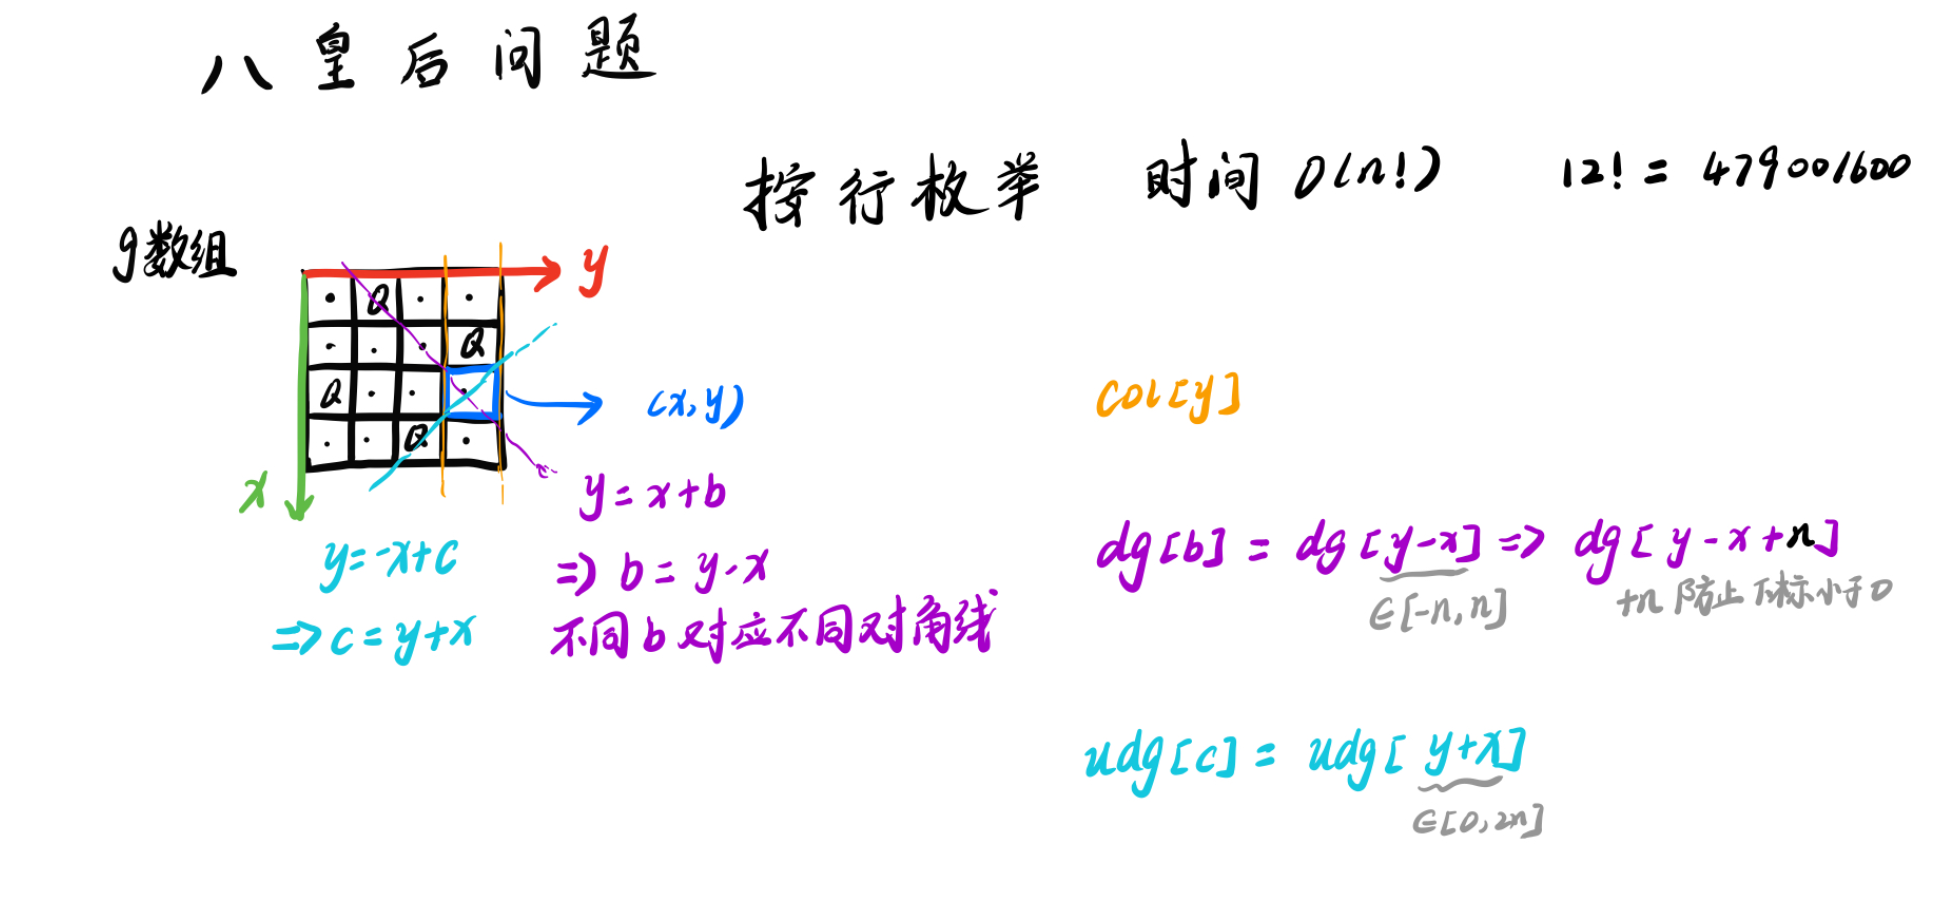 八皇后问题
按行枚举 时间 O(n!) 12! = 479001600
g数组
y
· Q · ·
· · · Q
Q · · ·
· · Q ·
(x,y)
x
col[y]
y=x+b
y=-x+c
=> b=y-x
=> c=y+x
不同b对应不同对角线
dg[b] = dg[y-x] => dg[y-x+n]
∈[-n,n]
+n 防止下标小于0
udg[c] = udg[y+x]
∈[0,2n]